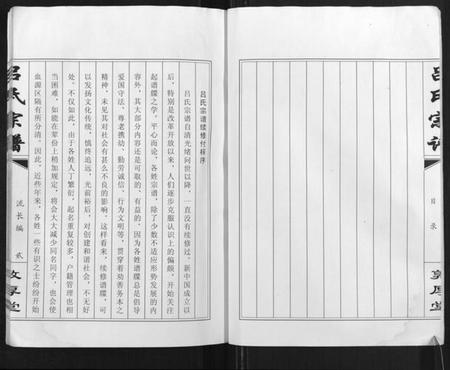 吕氏宗谱
目录
敦厚堂
吕氏宗谱续修付梓序
吕氏宗谱自清光绪问世以降，一直没有续修过。新中国成立以
后，特别是改革开放以来，人们逐步克服认识上的偏颇，开始关注
起谱牒之学。平心而论，各姓宗谱，除了少数不适应形势发展的内
容外，其大部分内容还是可取的、有益的，因为各姓谱牒总是倡导
爱国守法、尊老携幼、勤劳诚信、行为文明等，贯穿着劝善务本之
精神，未见其对社会有甚么不良的影响。这样看来，续修谱牒，可
以发扬文化传统，慎终追远，光前裕后，对创建和谐社会，不无好
处。不仅如此，由于各姓人丁繁衍，起名重复较多，户籍管理也相
当困难，如能在辈份上稍加规定，将会大大减少同名同字，也会使
血源区隔有所分清。因此，近些年来，各姓一些有识之士纷纷开始
吕氏宗谱
流长编
贰
敦厚堂